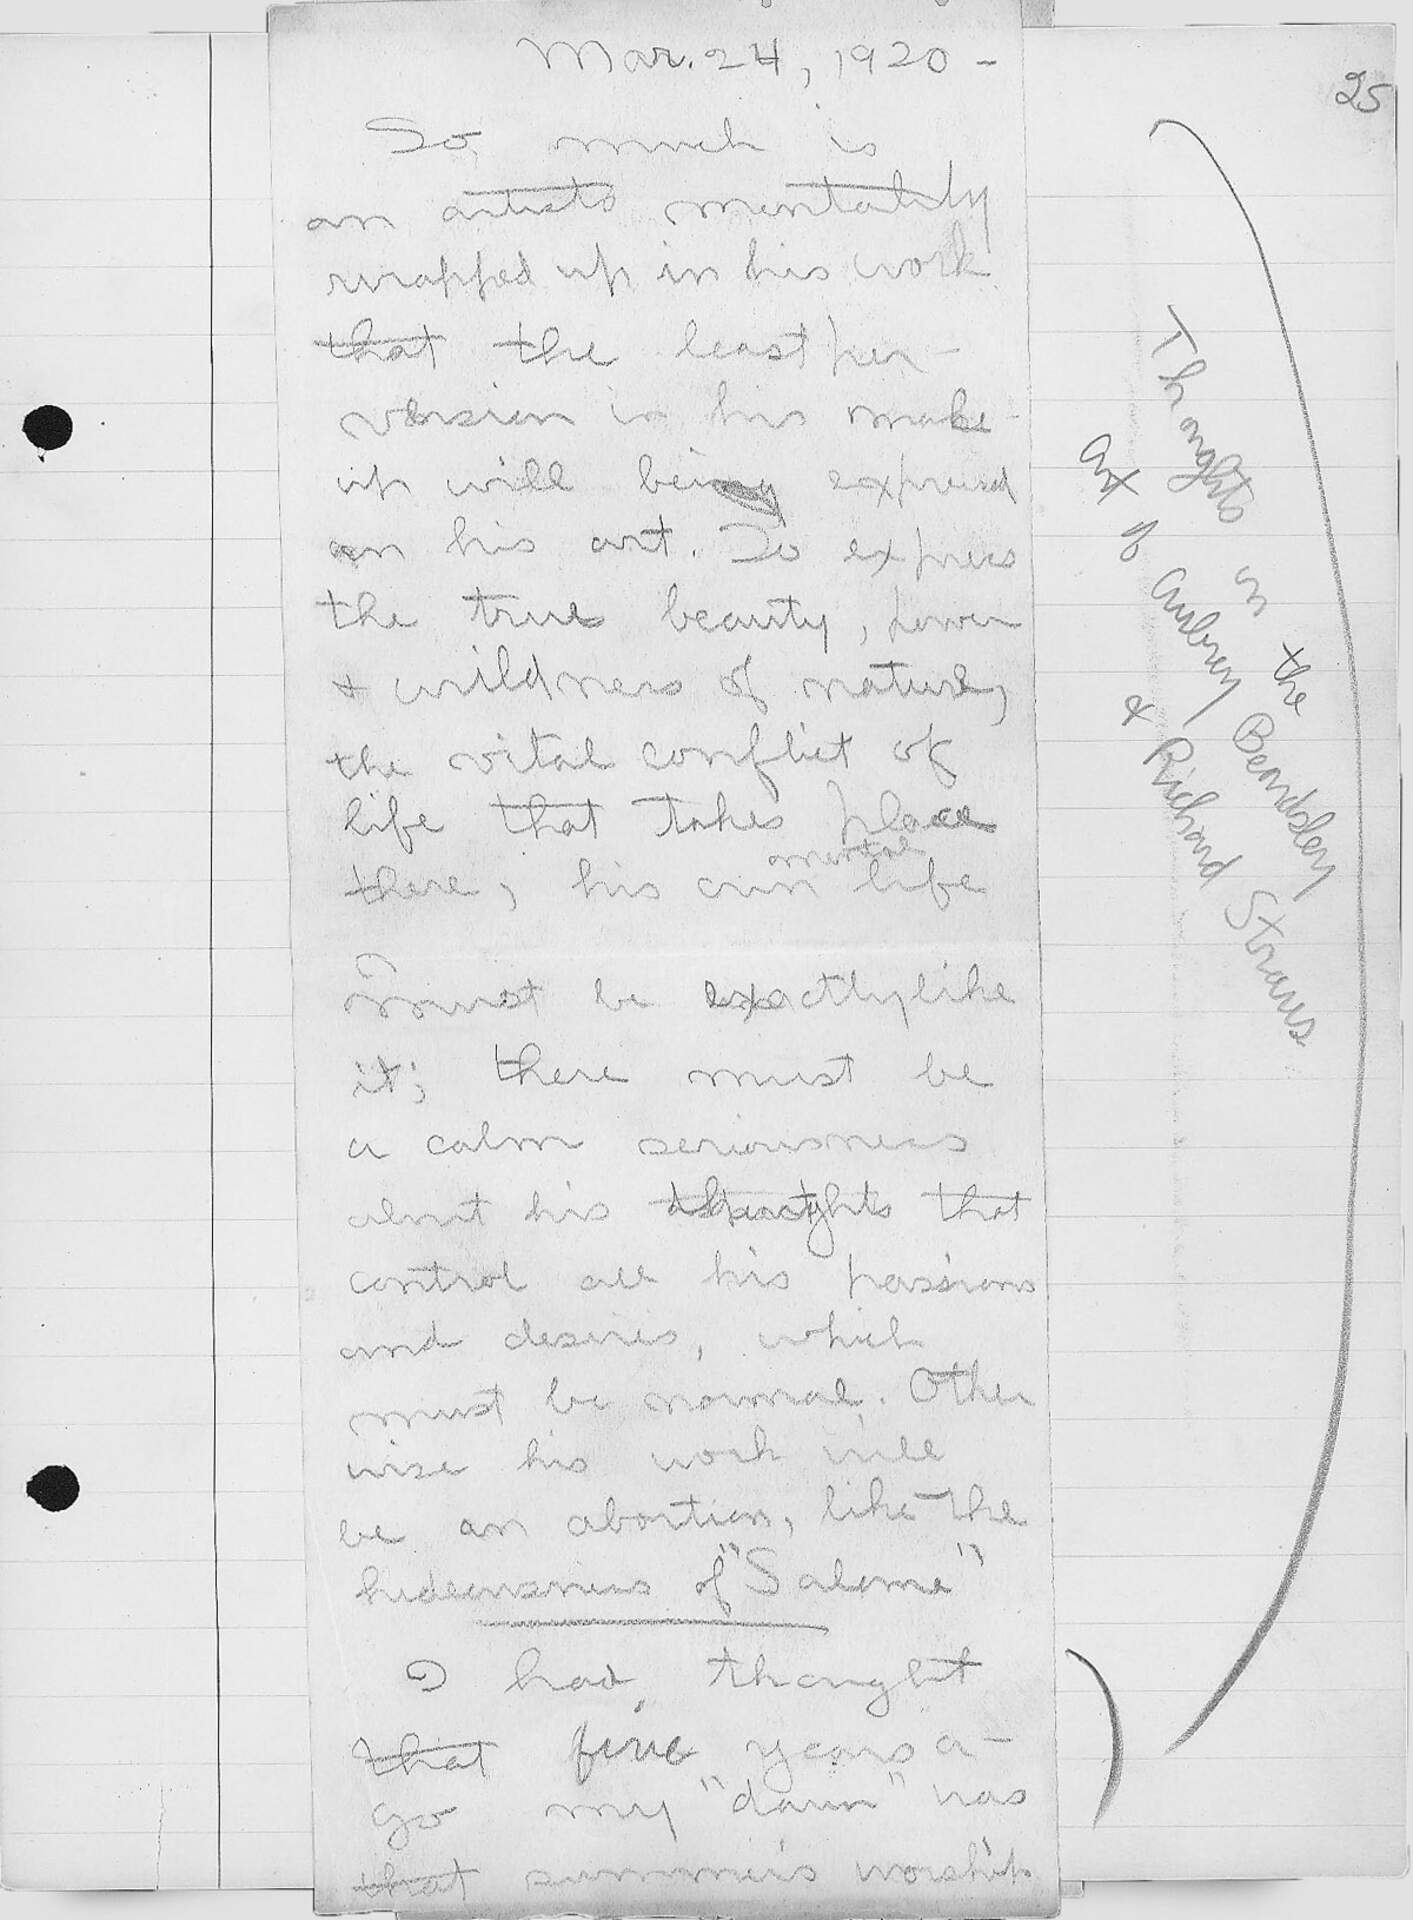 Mar. 24, 1920 -
25
So much is
an artists mentality
wrapped up in his work
that the least per-
version in his make-
up will being expressed
in his art. To express
the true beauty, power
+ wildness of nature,
the vital conflict of
life that takes place
there, his own mental life
must be exactly like
it; there must be
a calm seriousness
about his thoughts that
control all his passions
and desires, which
must be normal. Other
wise his work will
be an abortion, like the
hideousness of "Salome"
I had thought
that five years a-
go my "dawn" was
that summer's worship
Thoughts on the Beardsley
Art of Aubrey
& Richard Strauss